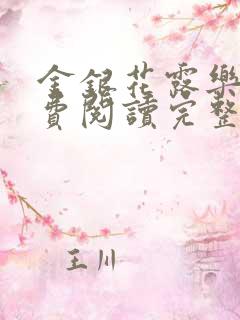 金銀花露樂
費閱讀完整
王川